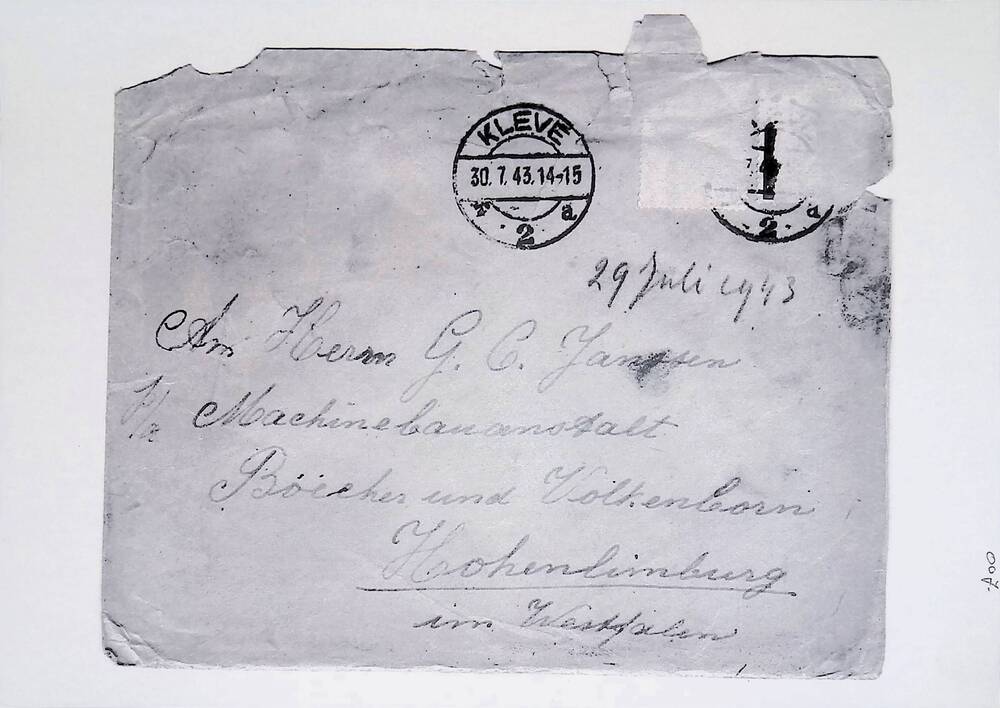 KLEVE
30.7.43.14-15
* 2 a
2 a
29 Juli 1943
An Herrn G. C. Janssen
P/a Machinebauanstalt
Böecher und Völkenborn
Hohenlimburg
im Westfalen